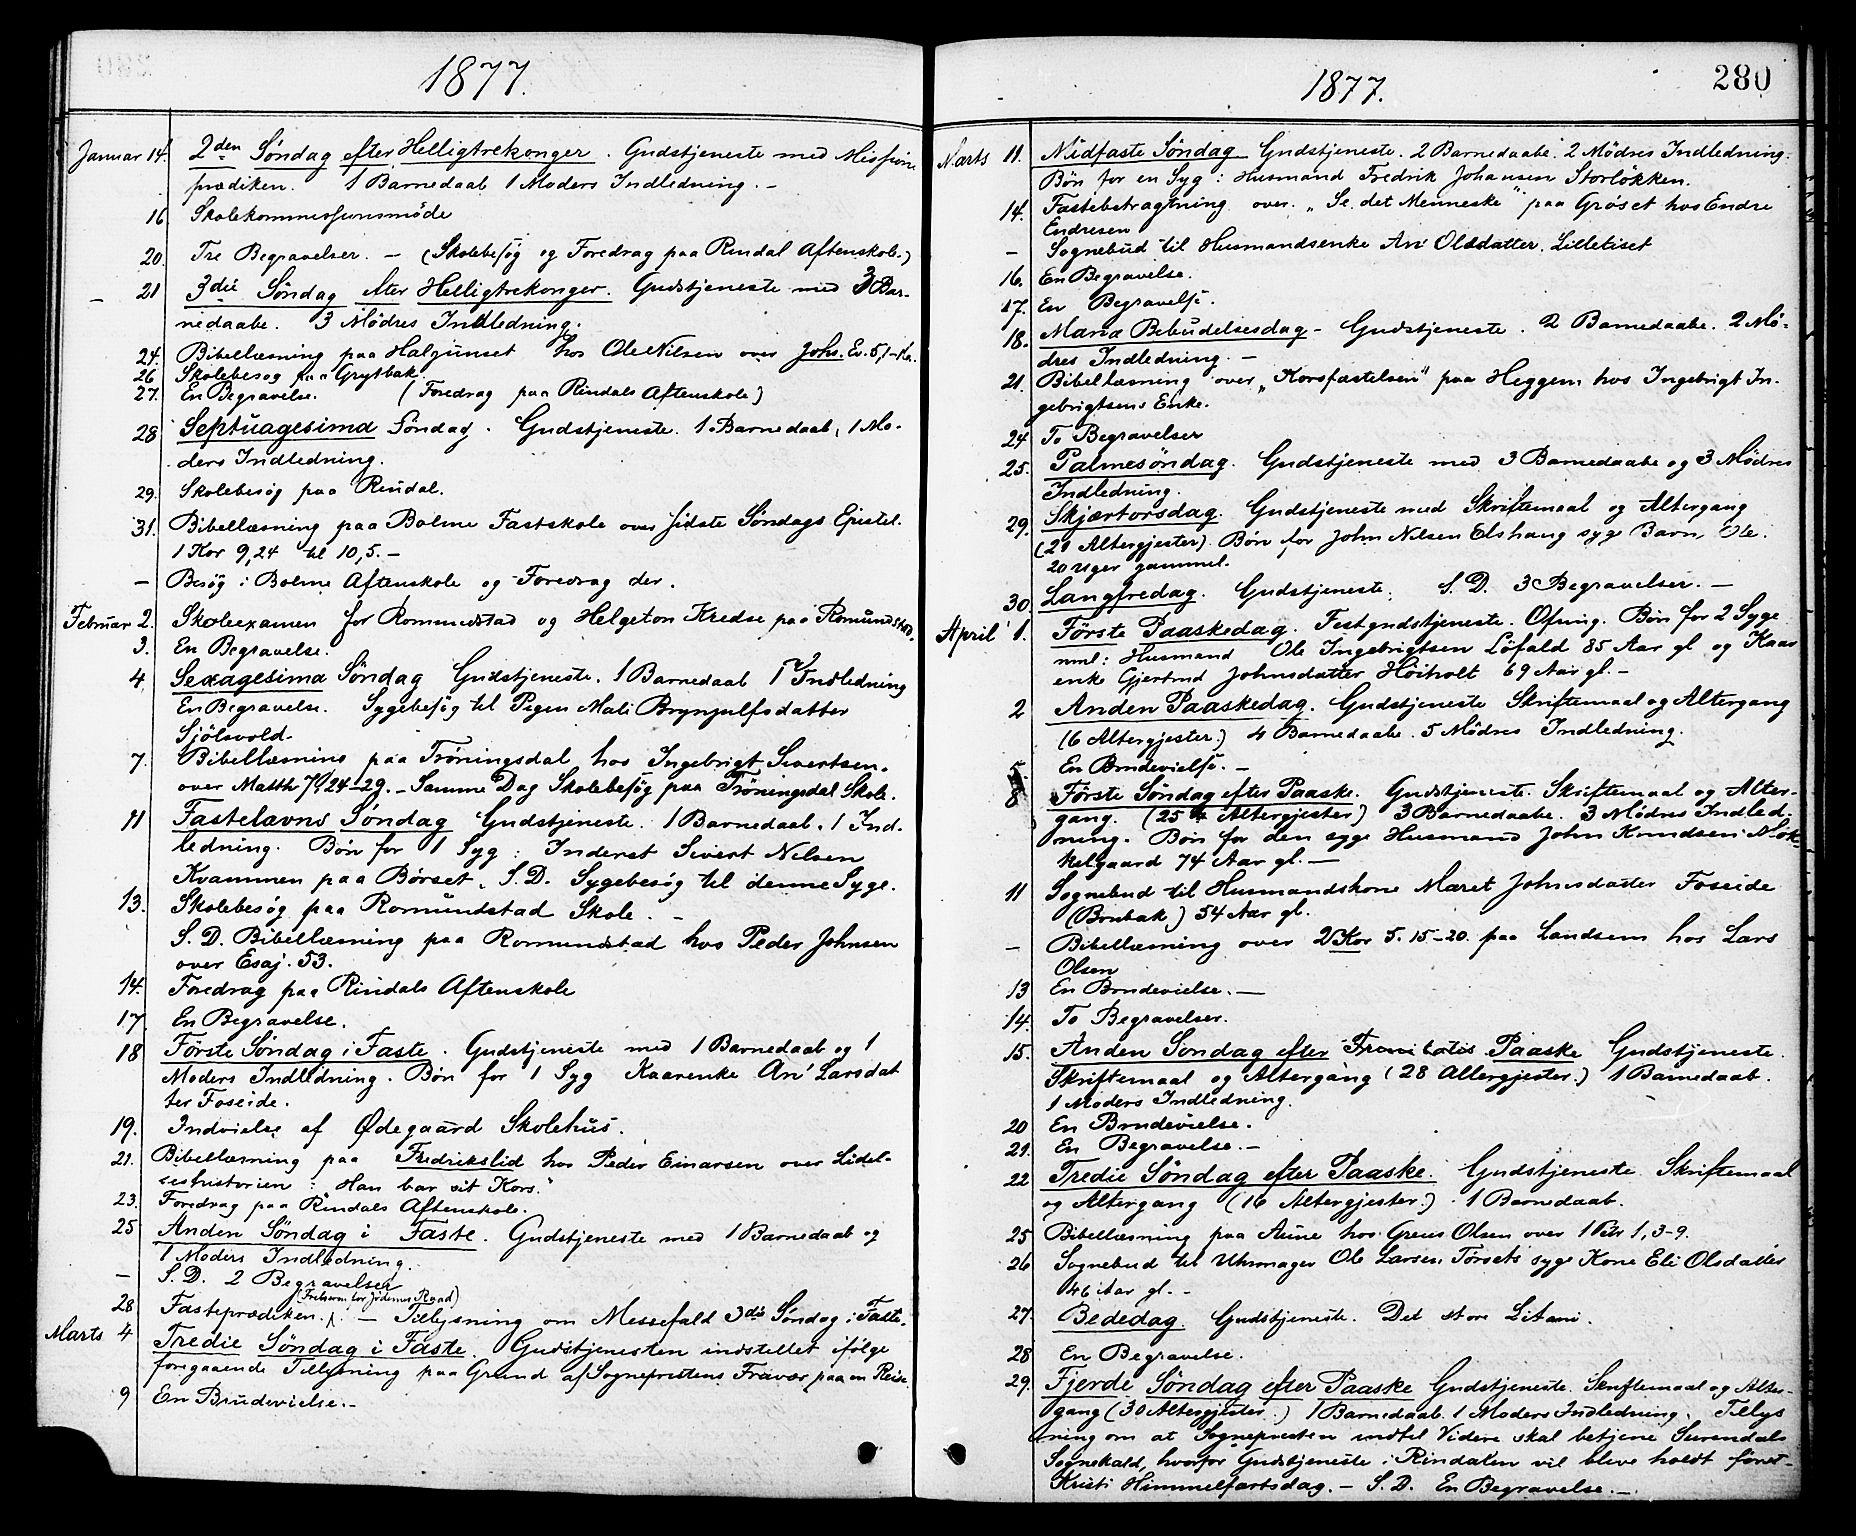 1877.
Januar 14. 2den Søndag efter Helligtrekonger. Gudstjeneste med Missions
prædiken. 1 Barnedaab 1 Moders Indledning. –
16 Skolekommissionsmøde
20. Tre Begravelser. – (Skolebesøg og Foredrag paa Rindal Aftenskole.)
– 21 3die Søndag efter Helligtrekonger. Gudstjeneste med 3 Bar-
nedaabe. 3 Mødres Indledning.
24. Bibellæsning paa Halgunset hos Ole Nilsen over Johs. Ev. 5,1-
26 Skolebesøg paa Grytbak.
27. En Begravelse. (Foredrag paa Rindals Aftenskole)
28 Septuagesima Søndag. Gudstjeneste. 1 Barnedaab, 1 Mo-
ders Indledning.
29. Skolebesøg paa Rindal.
31. Bibellæsning paa Bolme Fastskole over sidste Søndags Epistel.
1 Kor 9,24 til 10,5. –
– Besøg i Bolme Aftenskole og Foredrag der.
Februar 2. Skoleexamen for Romundstad og Helgeton Kredse paa Romundstad.
3. En Begravelse.
4. Sexagesima Søndag Gudstjeneste. 1 Barnedaab 1 Indledning
En Begravelse. Sygebesøg til Pigen Mali Brynjulfsdatter
Sjølsvold.
7. Bibellæsning paa Trøningsdal hos Ingebrigt Sivertsen.
over Matth 7, 24-29. – Samme Dag Skolebesøg paa Trøningsdal Skole.
11 Fastelavns Søndag Gudstjeneste. 1 Barnedaab. 1 Ind-
ledning. Bøn for 1 Syg: Inderst Sivert Nilsen
Kvammen paa Børset. S.D. Sygebesøg til denne Syge.
13. Skolebesøg paa Romundstad Skole. –
S.D. Bibellæsning paa Romundstad hos Peder Johnsen
over Esaj. 53.
14. Foredrag paa Rindals Aftenskole
17. En Begravelse.
18 Første Søndag i Faste. Gudstjeneste med 1 Barnedaab og 1
Moders Indledning. Bøn for 1 Syg Kaarenke An' Larsdat
ter Foseide.
19. Indvielse af Ødegaard Skolehus.
21. Bibellæsning paa Fredrikslid hos Peder Einarsen over Lidel-
seshistorien: "Han bar sit Kors."
23. Foredrag paa Rindals Aftenskole.
25 Anden Søndag i Faste. Gudstjeneste med 1 Barnedaab og
1 Moders Indledning.
– S.D. 2 Begravelser
(Frelseren for Jødernes Raad)
28 Fasteprædiken. – Tillysning om Messefald 3die Søndag i Faste.
Marts 4 Tredie Søndag i Faste. Gudstjenesten indstillet ifølge
foregaaende Tillysning paa Grund af Sogneprestens Fravær paa en Reise.
9 En Brudevielse. –
1877.
280
Marts 11. Midfaste Søndag Gudstjeneste. 2 Barnedaabe. 2 Mødres Indledning.
Bøn for en Syg: Husmand Fredrik Johansen Storløkken.
14. Fastebetragtning over "Se det Menneske" paa Grøset hos Endre
Endresen
– Sognebud til Husmandsenke An' Olsdatter Lilletiset
16. En Begravelse.
17. En Begravelse.
18. Maria Bebudelsesdag – Gudstjeneste. 2 Barnedaabe. 2 Mø-
dres Indledning. –
21. Bibellæsning over "Korsfæstelsen" paa Heggem hos Ingebrigt In-
gebrigtsens Enke.
24 To Begravelser
25. Palmesøndag. Gudstjeneste med 3 Barnedaabe og 3 Mødres
Indledning.
29. Skjærtorsdag. Gudstjeneste med Skriftemaal og Altergang
(29 Altergjester). Bøn for John Nilsen Elshaug syge Barn, Ole.
20 uger gammel.
30. Langfredag. Gudstjeneste. S.D. 3 Begravelser. –
April 1. Første Paaskedag. Festgudstjeneste. Ofring. Bøn for 2 Syge
nml: Husmand Ole Ingebrigtsen Løfald 85 Aar gl og Kaar
enke Gjertrud Johnsdatter Høiholt 69 Aar gl. –
2 Anden Paaskedag. Gudstjeneste Skriftemaal og Altergang
(6 Altergjester.) 4 Barnedaabe. 5 Mødres Indledning.
5. En Brudevielse. –
8 Første Søndag efter Paaske. Gudstjeneste. Skriftemaal og Alter-
gang. (25 Altergjester) 3 Barnedaabe. 3 Mødres Indled-
ning. Bøn for den syge Husmand John Knudsen Møk-
kelgaard 74 Aar gl. –
11 Sognebud til Husmandskone Maret Johnsdatter Foseide
(Brubak) 54 Aar gl.
– Bibellæsning over 2 Kor 5. 15-20. paa Landsem hos Lars
Olsen
13 En Brudevielse. –
14. To Begravelser.
15. Anden Søndag efter Paaske Gudstjeneste.
Skriftemaal og Altergang (28 Altergjester.) 1 Barnedaab.
1 Moders Indledning.
20 En Brudevielse.
21. En Begravelse. –
22 Tredie Søndag efter Paaske. Gudstjeneste Skriftemaal
og Altergang (16 Altergjester.) 1 Barnedaab.
25 Bibellæsning paa Aune hos Greus Olsen over 1 Petr 1, 3-9.
26 Sognebud til Uhrmager Ole Larsen Tørsets syge Kone Eli Olsdatter
46 Aar gl. –
27. Bededag. Gudstjeneste. Det store Litani.
28 En Begravelse.
29. Fjerde Søndag efter Paaske Gudstjeneste. Skriftemaal og Alter-
gang (30 Altergjester.) 1 Barnedaab. 1 Moders Indledning. Tillys
ning om at Sognepresten indtil Videre skal betjene Surendals
Sognekald, hvorfor Gudstjeneste i Rindalen vil blive holdt først
Kristi Himmelfartsdag. – S.D. En Begravelse. –